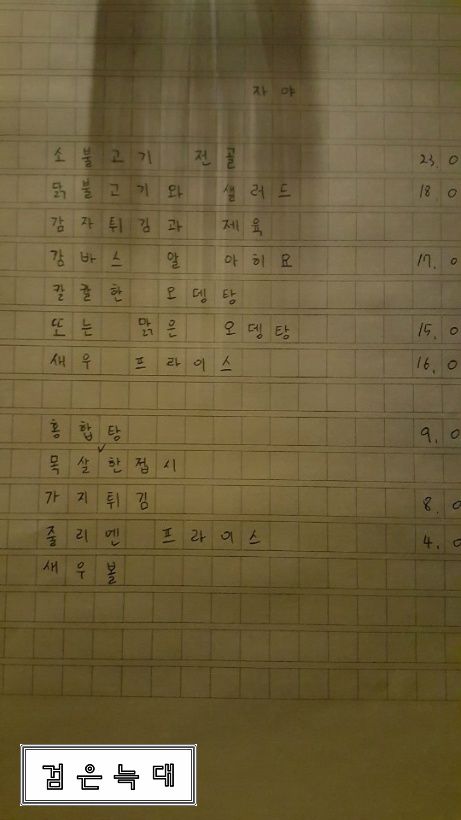 자야
소불고기 전골 23.0
닭불고기와 샐러드 18.0
감자튀김과 제육
감바스 알 아히요 17.0
칼칼한 오뎅탕
또는 맑은 오뎅탕 15.0
새우 프라이스 16.0
홍합탕 9.0
목살한접시
가지튀김 8.0
줄리엔 프라이스 4.0
새우볼
검은늑대